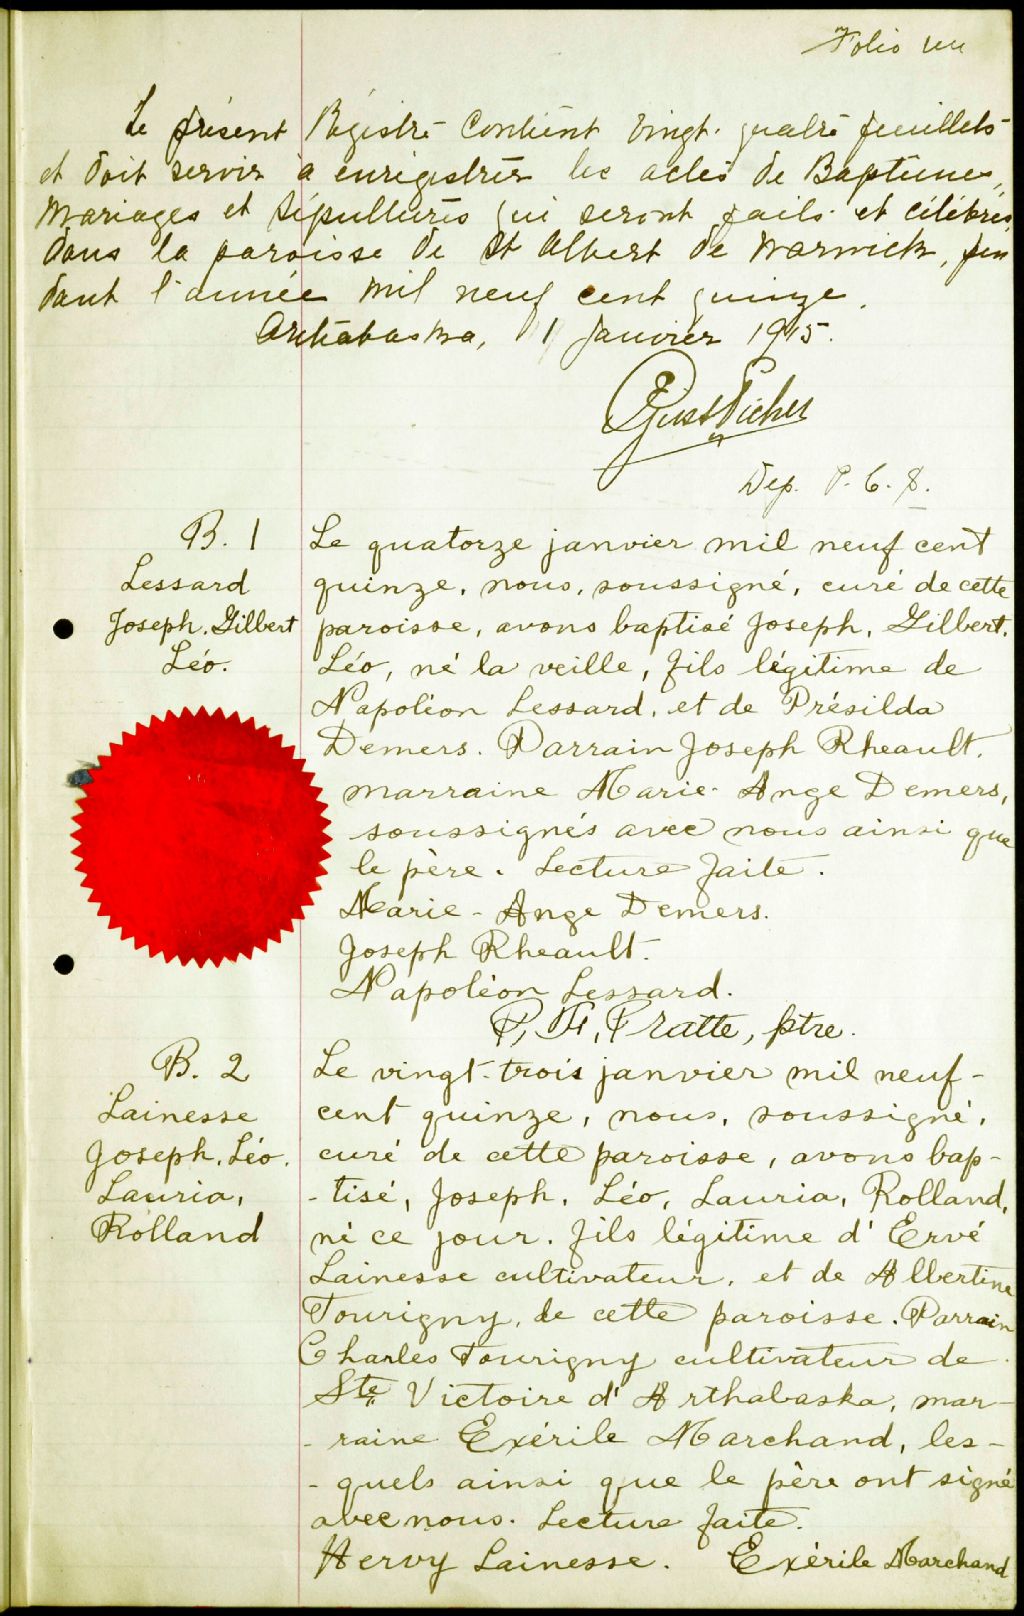 Folio un
Le présent Régistre contient vingt-quatre feuillets
et doit servir à enrégistrer les actes de Baptêmes,
Mariages et Sépultures qui seront faits et célébrés
dans la paroisse de St Albert de Warwick, pen
dant l'année mil neuf cent quinze.
Arthabaska, 11 janvier 1915.
Dep. P. C. S.
B. 1
Lessard
Joseph, Gilbert
Léo.
Le quatorze janvier mil neuf cent
quinze, nous, soussigné, curé de cette
paroisse, avons baptisé Joseph, Gilbert,
Léo, né la veille, fils légitime de
Napoléon Lessard, et de Présilda
Demers. Parrain Joseph Rheault.
marraine Marie-Ange Demers,
soussignés avec nous ainsi que
le père. Lecture faite.
Marie-Ange Demers.
Joseph Rheault.
Napoléon Lessard.
P. F. Pratte, ptre.
B. 2
Lainesse
Joseph, Léo.
Lauria,
Rolland
Le vingt-trois janvier mil neuf-
cent quinze, nous, soussigné,
curé de cette paroisse, avons bap-
-tisé, Joseph, Léo, Lauria, Rolland,
né ce jour. fils légitime d'Ervé
Lainesse cultivateur, et de Albertine
Tourigny, de cette paroisse. Parrain
Charles Tourigny cultivateur de
Ste Victoire d'Arthabaska, mar-
-raine Exérile Marchand, les-
-quels ainsi que le père ont signé
avec nous. Lecture faite.
Hervy Lainesse. Exérile Marchand